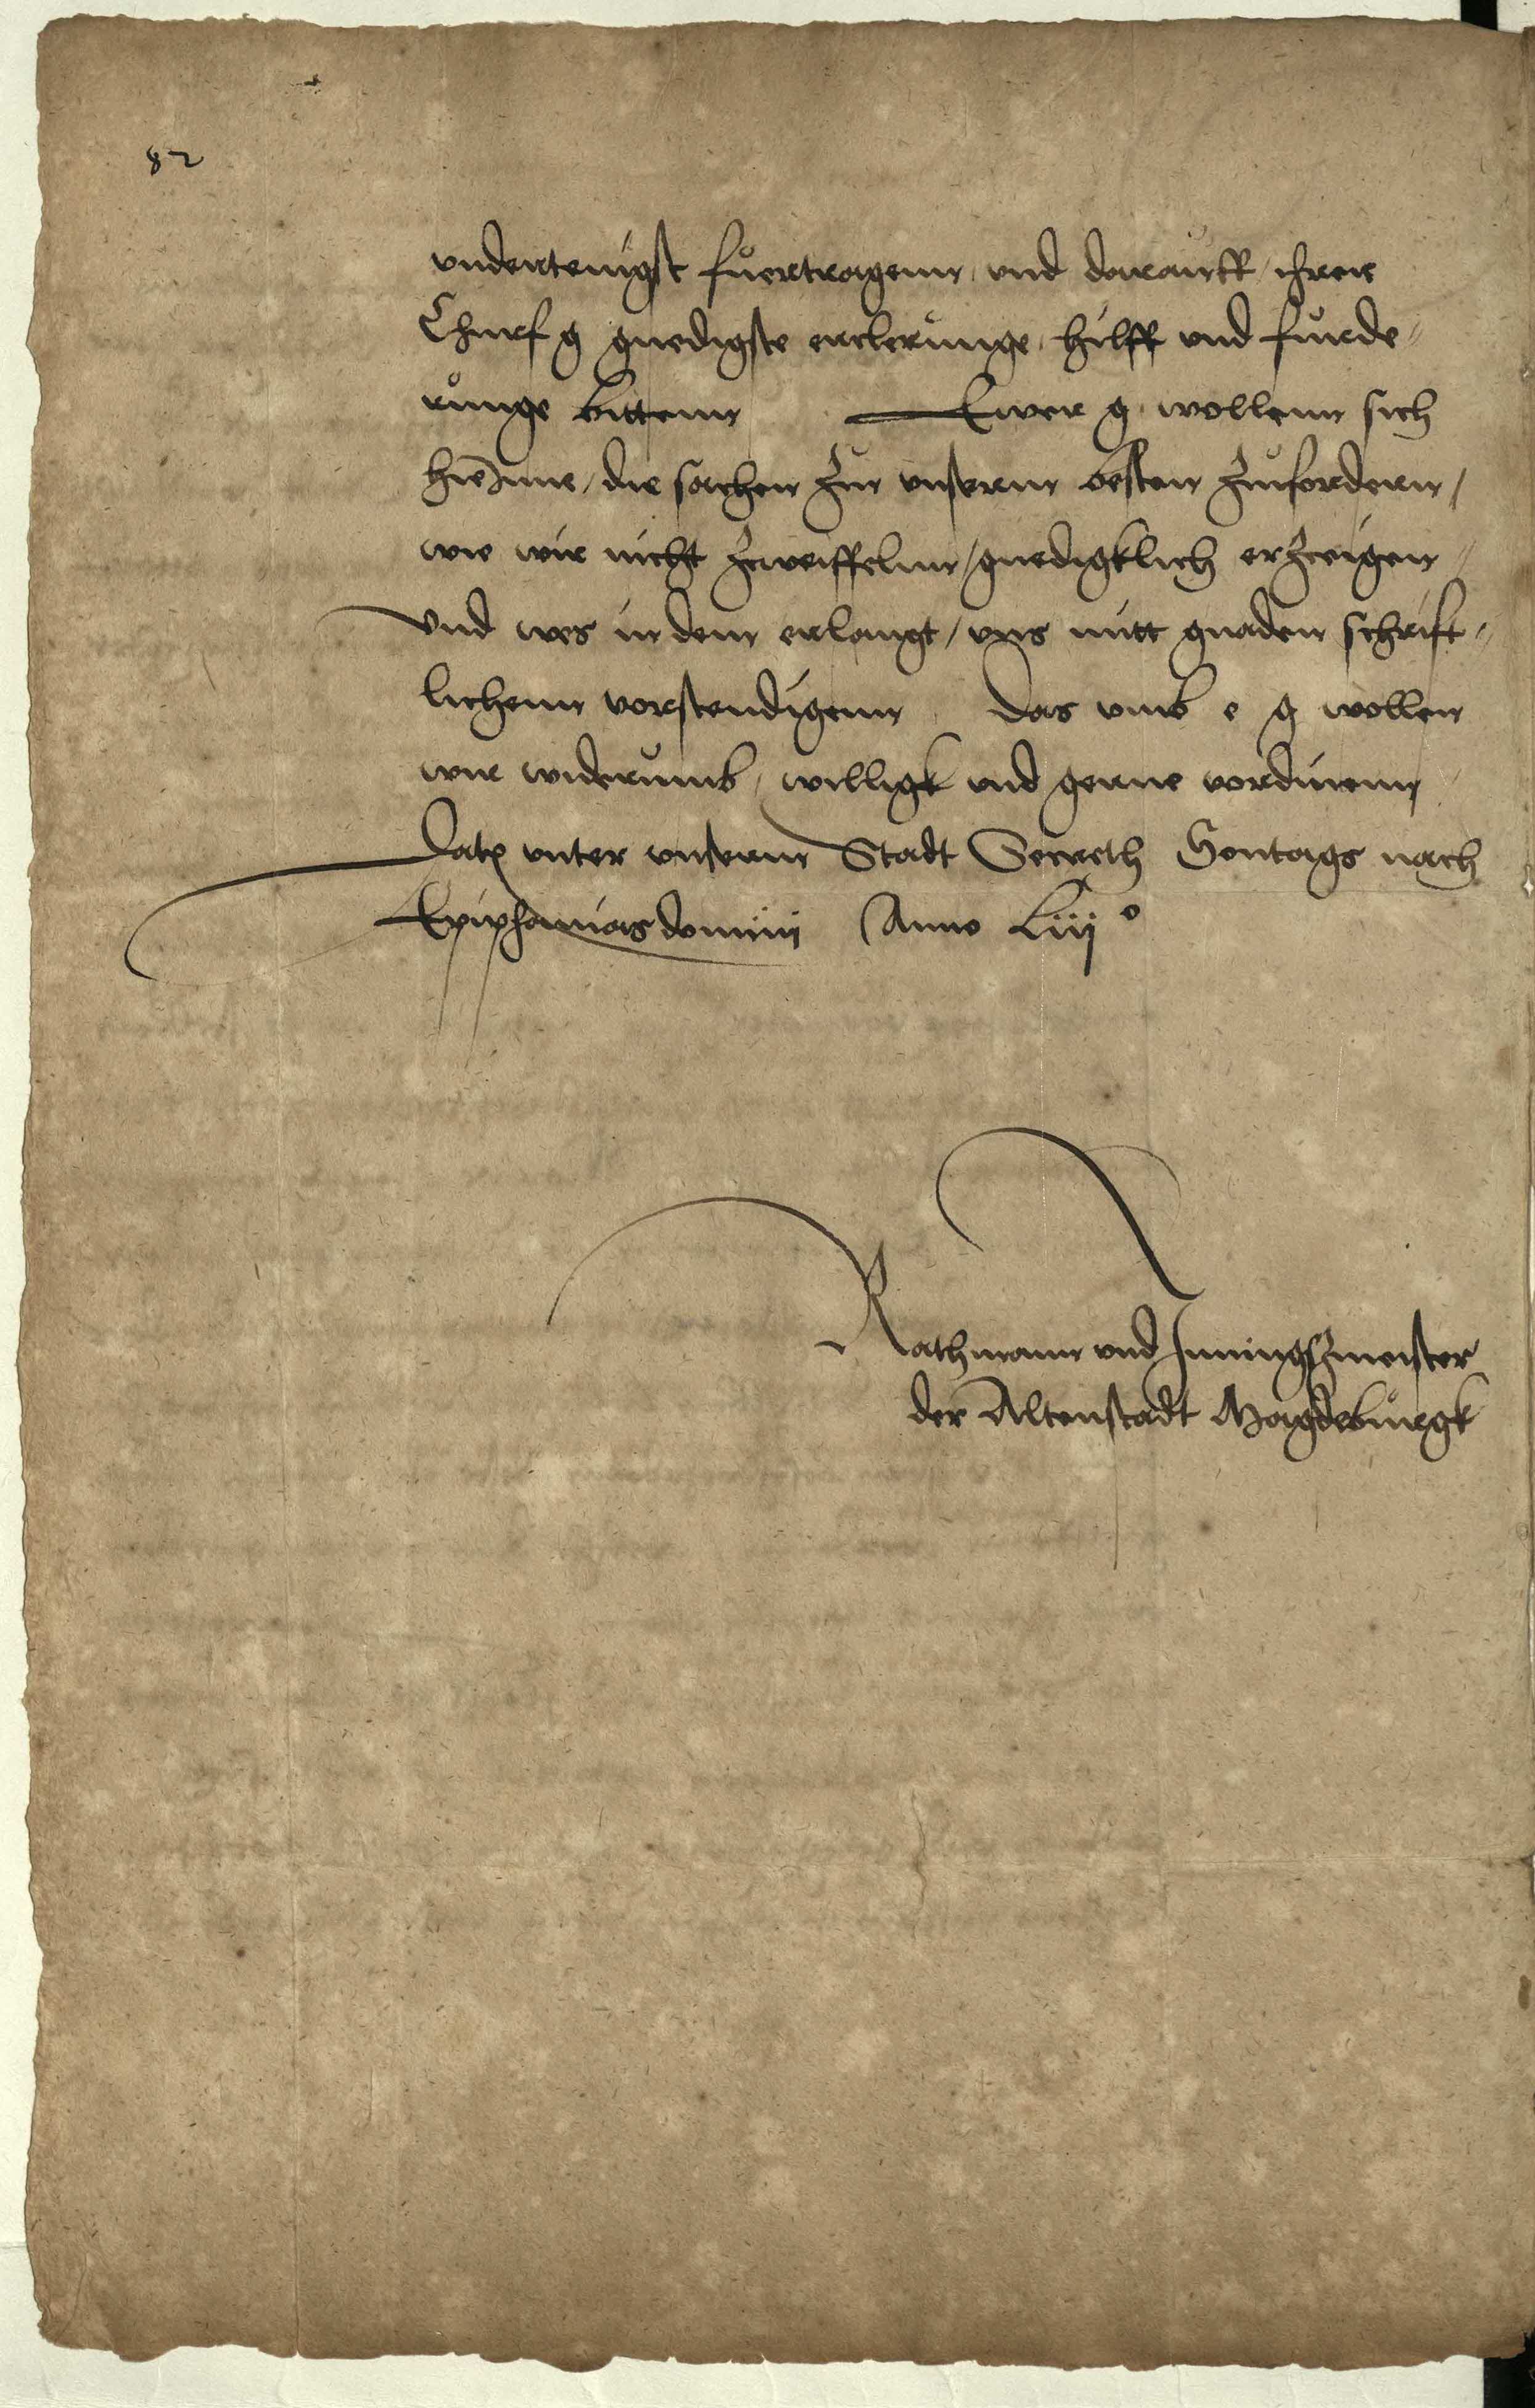 82
undertenigst fůertragenn, und darauff, ihrer
Churf g gnedigste ercleru̇nge, hilff und fůrde-
růnge bittenn Ewer g. wollenn sich
hierinne, die sachen zu unserm besten zůfordern,
wie wir nicht zweiffelnn, gnedigklich erzeigen
Und wes in dem erlangt, uns mitt gnaden schrift-
lichenn vorstendigenn Das umb e g wollen
wir widerůmb, willigk und gerne vordinenn
Datum unter unserm Stadt Secreth Sontags nach
Epiphanias domini Anno Liijº
Rathmann und Inningßmeister
der Altenstadt Magdebůrgk